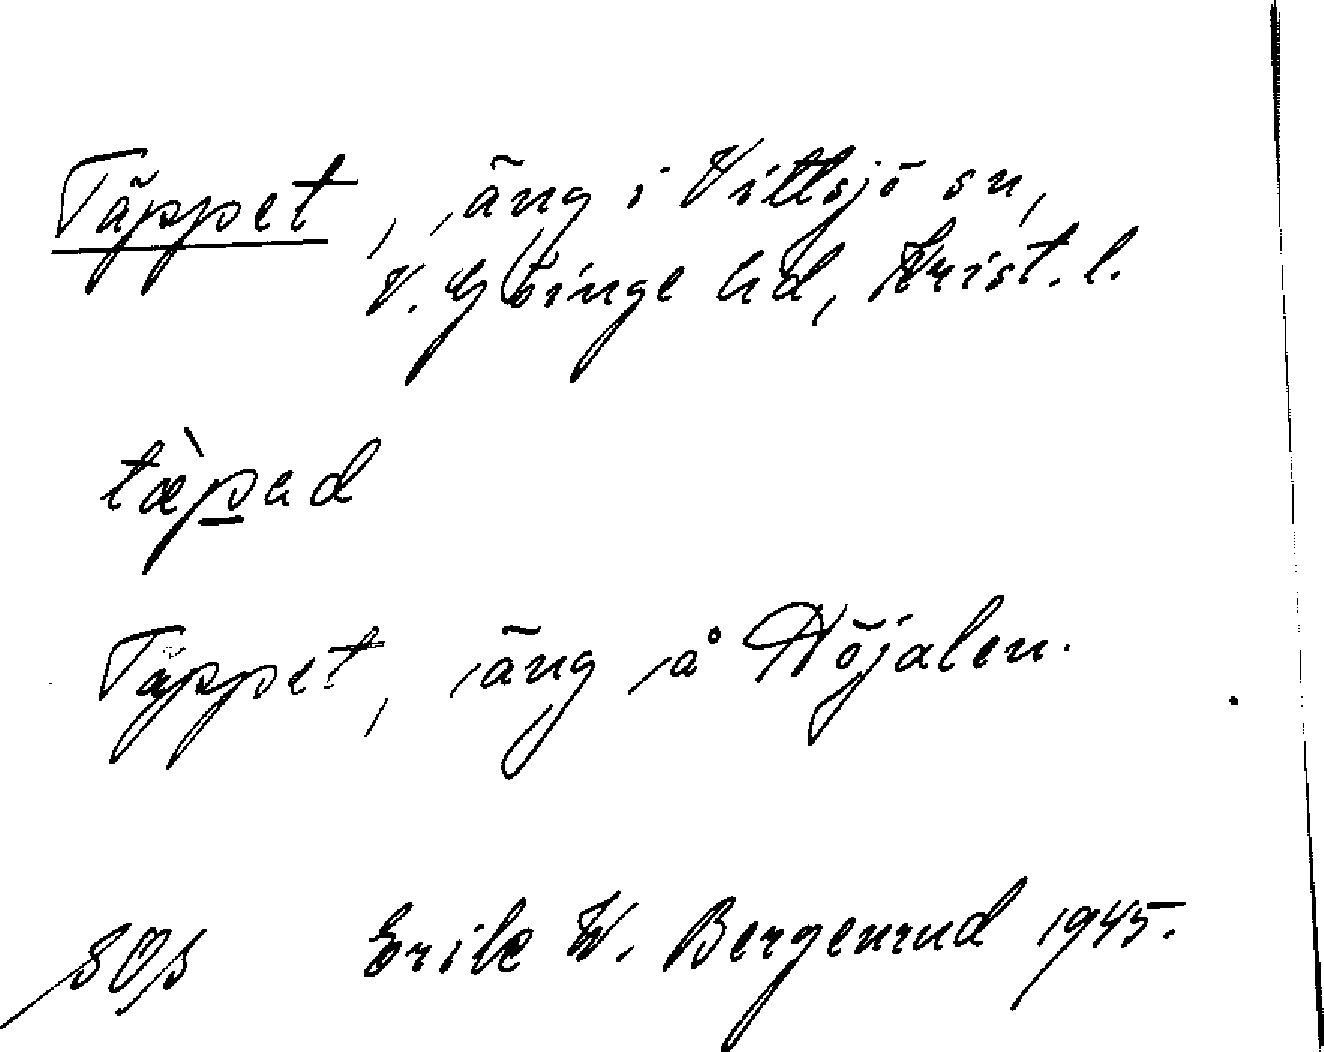 Täppet, äng i Vittsjö sn,
V. Göinge hd, Krist. l.
tæ̀pad
Täppet, äng å Höjalen.
Erik W. Bergenrud 1945.